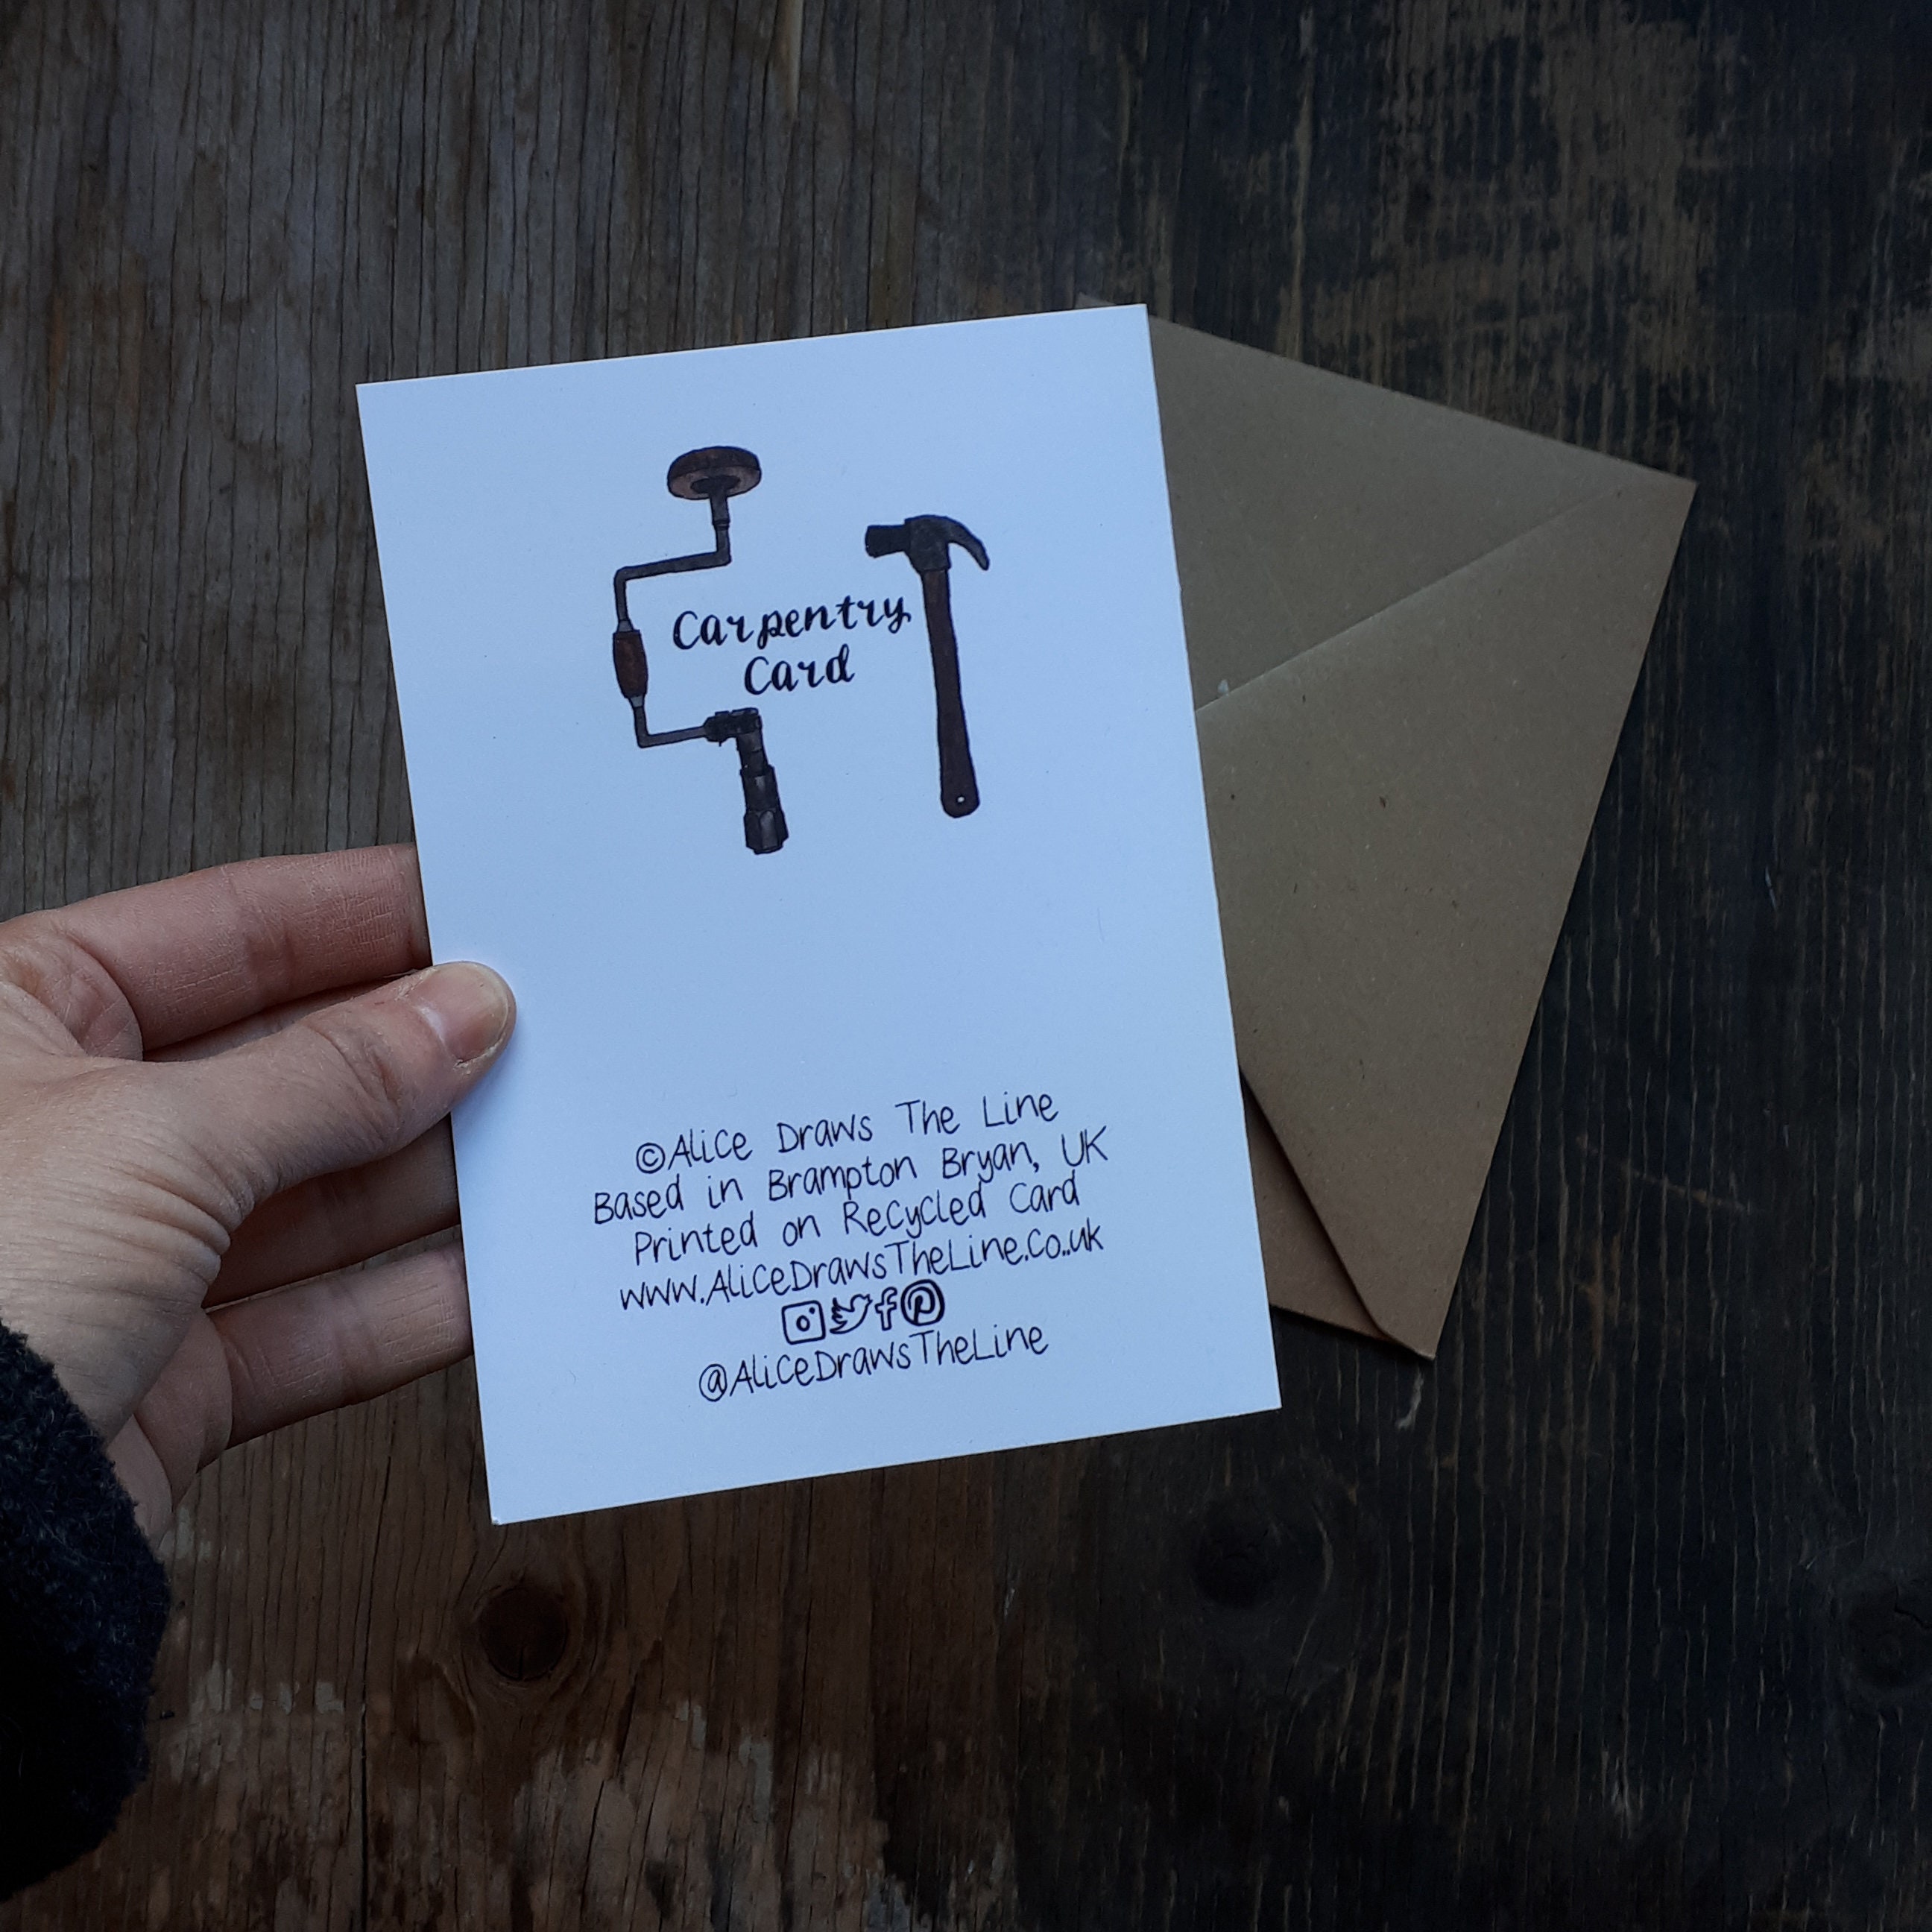 Carpentry
Card
©Alice Draws The Line
Based in Brampton Bryan, UK
Printed on Recycled Card
www.AliceDrawsTheLine.Co..uk
@AliceDrawsTheLine